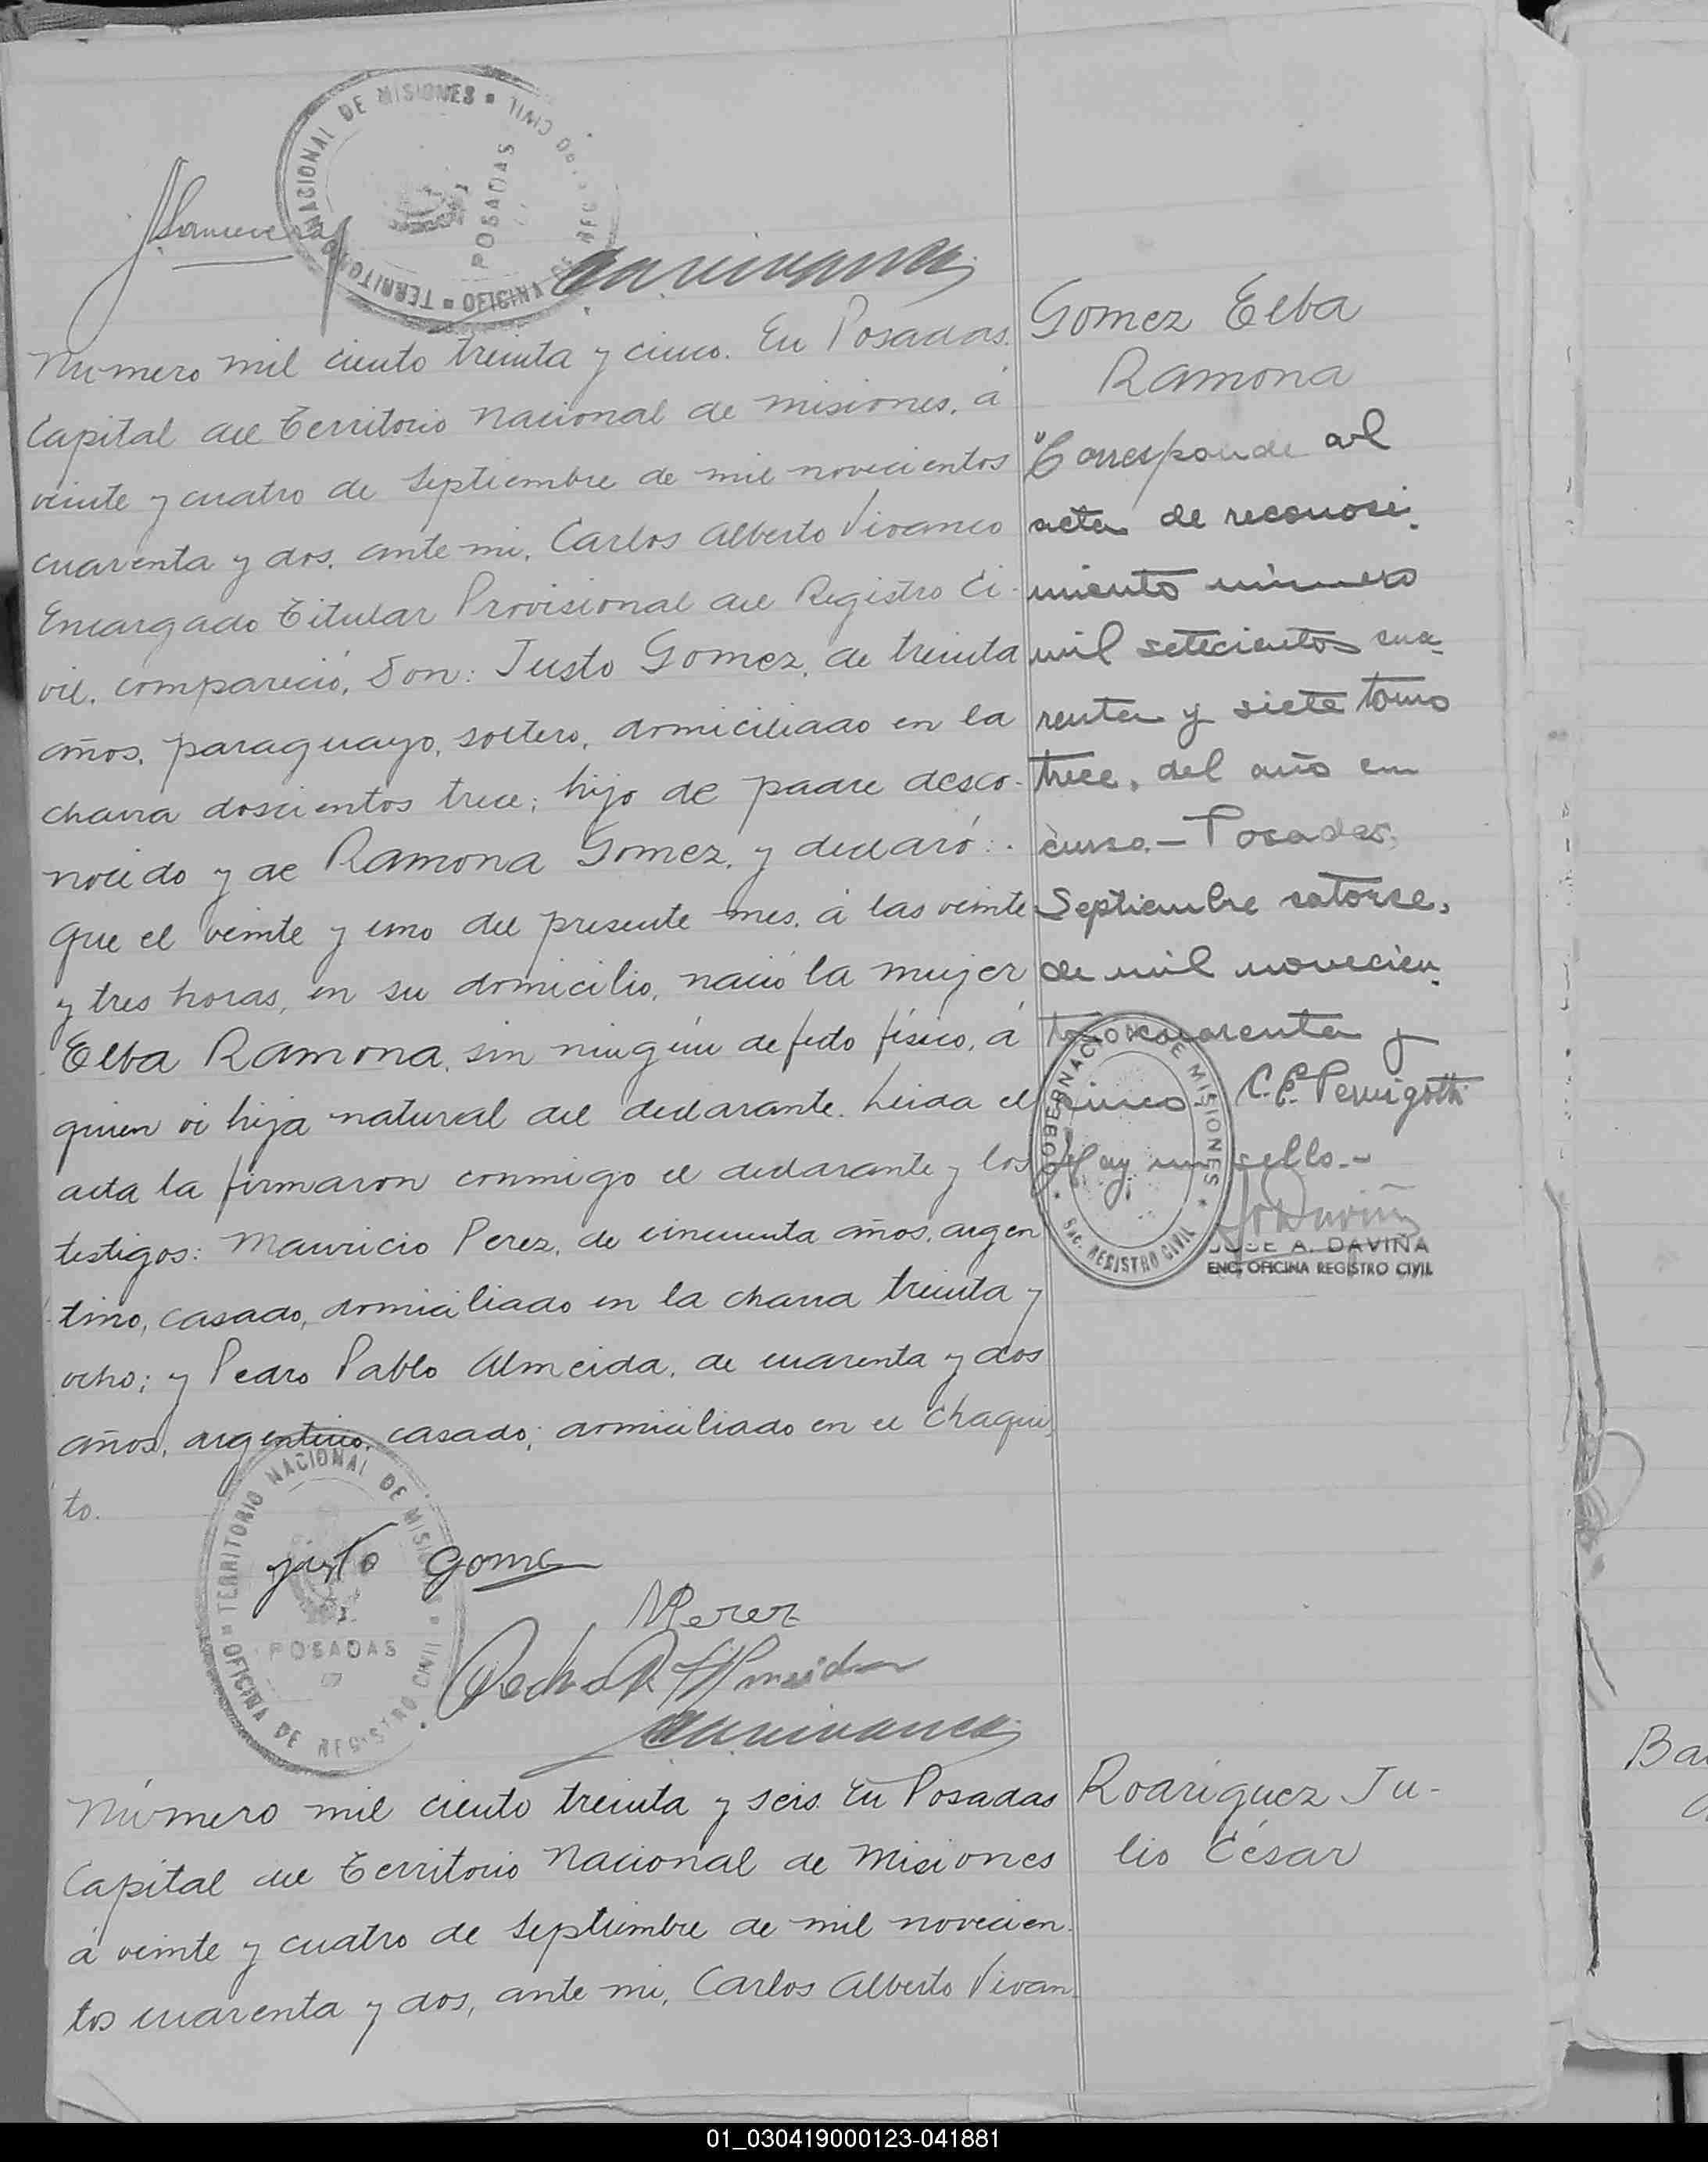 TERRITORIO NACIONAL DE MISIONES
OFICINA DE REG CIVIL
POSADAS
Numero mil ciento treinta y cinco. En Posadas.
Capital del Territorio Nacional de Misiones, á
veinte y cuatro de Septiembre de mil novecientos
cuarenta y dos, ante mi, Carlos Alberto Vivanco
Encargado Titular Provisional del Registro Ci-
vil, compareció, Don: Justo Gomez, de treinta
años, paraguayo, soltero, domiciliado en la
chacra doscientos trece; hijo de padre desco-
nocido y de Ramona Gomez, y declaró:
Que el veinte y uno del presente mes, á las veinte
y tres horas, en su domicilio, nació la mujer
Elba Ramona, sin ningún defecto físico, á
quien vi hija natural del declarante. Leida el
acta la firmaron conmigo el declarante y los
testigos: Mauricio Perez, de cincuenta años, argen
tino, casado, domiciliado en la chacra treinta y
ocho; y Pedro Pablo Almeida, de cuarenta y dos
años, argentino, casado; domiciliado en el Chaqui
to.
Gomez Elba
Ramona
"Corresponde al
acta de reconosi-
miento número
mil setecientos cua-
renta y siete tomo
trece, del año en
curso.- Posadas,
Septiembre catorse,
de mil novecien-
tos cuarenta y
cinco, C.E. Peruigotti
Hay un sello.-
GOBERNACION DE MISIONES
Sec. REGISTRO CIVIL
JOSE A. DAVIÑA
ENC. OFICINA REGISTRO CIVIL
TERRITORIO NACIONAL DE MISIONES
OFICINA DE REGISTRO CIVIL
POSADAS
Justo Gomez
MPerez
Pedro P. Almeida
Número mil ciento treinta y seis. En Posadas
Capital del Territorio Nacional de Misiones
á veinte y cuatro de Septiembre de mil novecien-
tos cuarenta y dos, ante mi, Carlos Alberto Vivan
Rodriguez Ju-
lio César
Ba
01_030419000123-041881